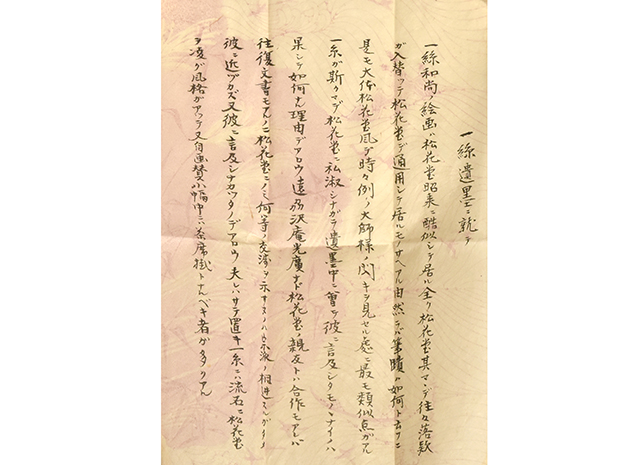 一絲遺墨ニ就テ
一絲和尚ノ絵画ハ松花堂昭乗ニ酷似シテ居ル全ク松花堂其マヽデ往々落款
ガ入替ッテ松花堂デ通用シテ居ルモノサヘアル由然ラバ筆蹟ハ如何ト云フニ
是モ大体松花堂風デ時々例ノ大師様ノ閃キヲ見セル処ニ最モ類似点ガアル
一糸ガ斯クマデ松花堂ニ私淑シナガラ遺墨中ニ曾テ彼ニ言及シタモノヽナイノハ
果シテ如何ナル理由デアロウ遠州沢庵光廣ナド松花堂ノ親友トハ合作モアレバ
往復文書モアルノニ松花堂ニノミ何等ノ交渉ヲ示サヌノハ
彼ニ近ヅカズ又彼ニ言及シナカッタノデアロウ夫レハサテ置キ一糸ニハ流石ニ松花堂
ヲ凌グ風格ガアッテ又自画賛小幅中ニハ茶席掛トナスベキ者ガ多クアル